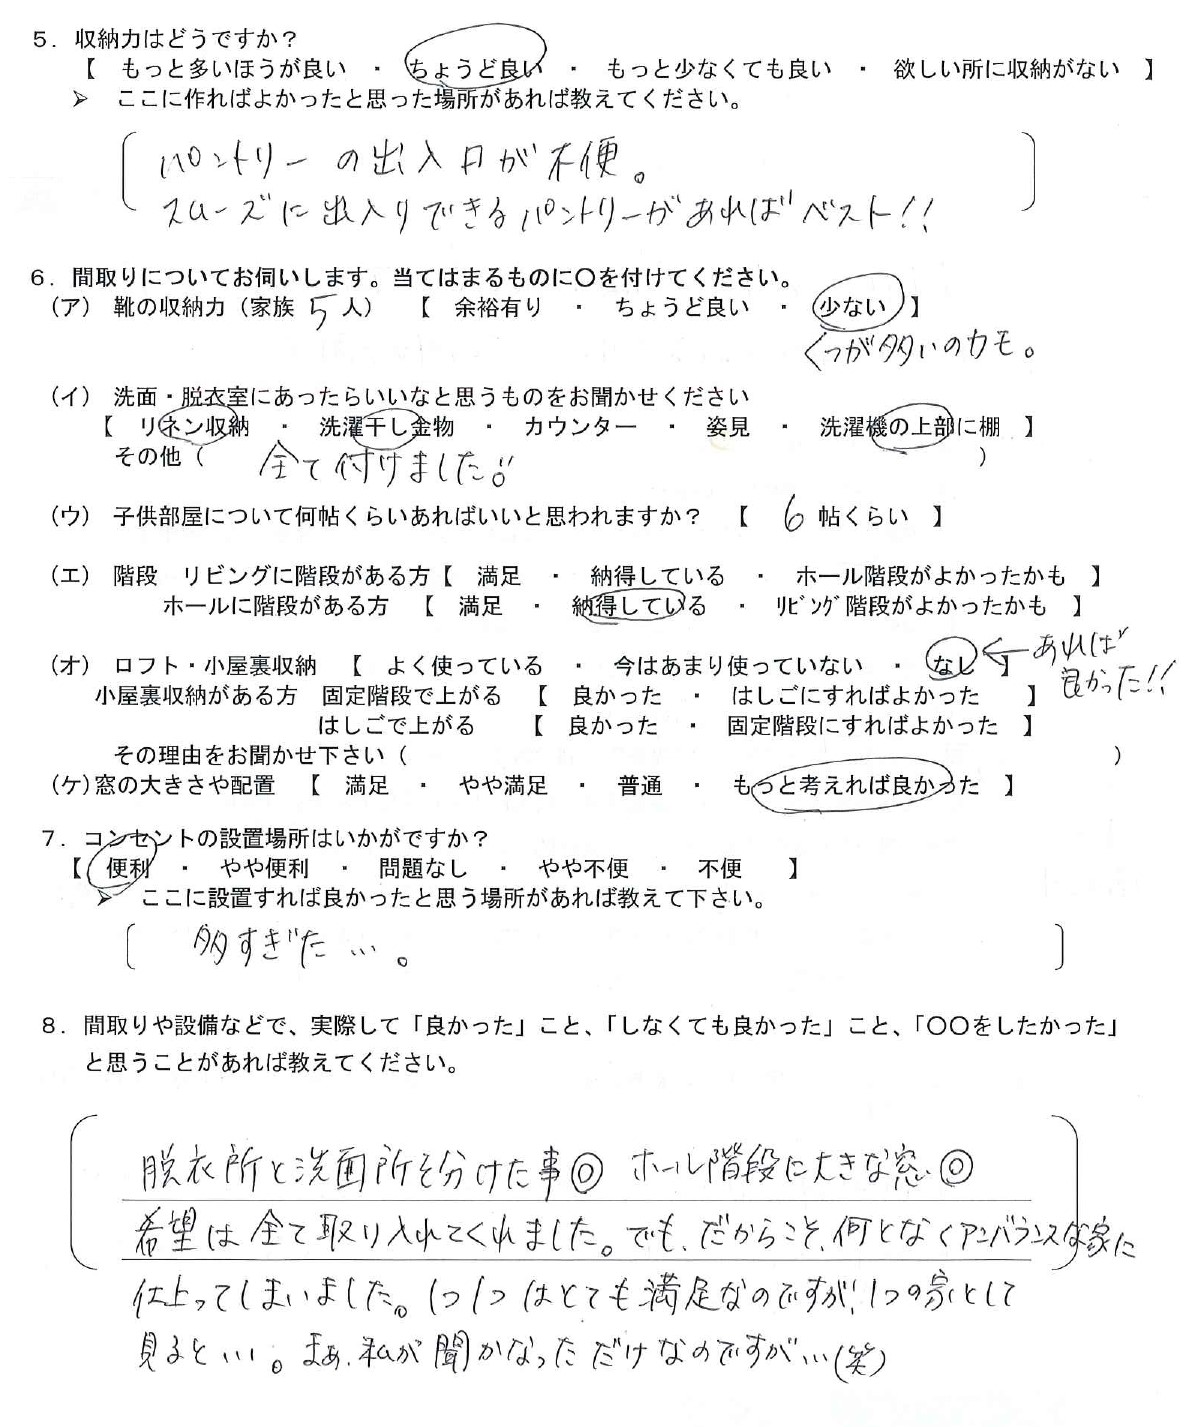 5．収納力はどうですか？
【　もっと多いほうが良い　・　ちょうど良い　・　もっと少なくても良い　・　欲しい所に収納がない　】
➢　ここに作ればよかったと思った場所があれば教えてください。
パントリーの出入口が不便。
スムーズに出入りできるパントリーがあればベスト!!
6．間取りについてお伺いします。当てはまるものに〇を付けてください。
（ア）　靴の収納力（家族 5 人）　【　余裕有り　・　ちょうど良い　・　少ない　】
くつが多いのカモ。
（イ）　洗面・脱衣室にあったらいいなと思うものをお聞かせください
【　リネン収納　・　洗濯干し金物　・　カウンター　・　姿見　・　洗濯機の上部に棚　】
その他（　全て付けました。　）
（ウ）　子供部屋について何帖くらいあればいいと思われますか？　【　6 帖くらい　】
（エ）　階段　リビングに階段がある方【　満足　・　納得している　・　ホール階段がよかったかも　】
ホールに階段がある方　【　満足　・　納得している　・　ﾘﾋﾞﾝｸﾞ階段がよかったかも　】
（オ）　ロフト・小屋裏収納　【　よく使っている　・　今はあまり使っていない　・　なし　】←あれば
良かった!!
小屋裏収納がある方　固定階段で上がる　【　良かった　・　はしごにすればよかった　】
はしごで上がる　【　良かった　・　固定階段にすればよかった　】
その理由をお聞かせ下さい（　　）
（ケ）窓の大きさや配置　【　満足　・　やや満足　・　普通　・　もっと考えれば良かった　】
7．コンセントの設置場所はいかがですか？
【　便利　・　やや便利　・　問題なし　・　やや不便　・　不便　】
➢　ここに設置すれば良かったと思う場所があれば教えて下さい。
多すぎた…。
8．間取りや設備などで、実際して「良かった」こと、「しなくても良かった」こと、「〇〇をしたかった」
と思うことがあれば教えてください。
脱衣所と洗面所を分けた事◎ ホール階段に大きな窓◎
希望は全て取り入れてくれました。でも、だからこそ、何となくアンバランスな家に
仕上ってしまいました。1つ1つはとても満足なのですが、1つの家として
見ると…。まぁ、私が聞かなっただけなのですが…(笑)